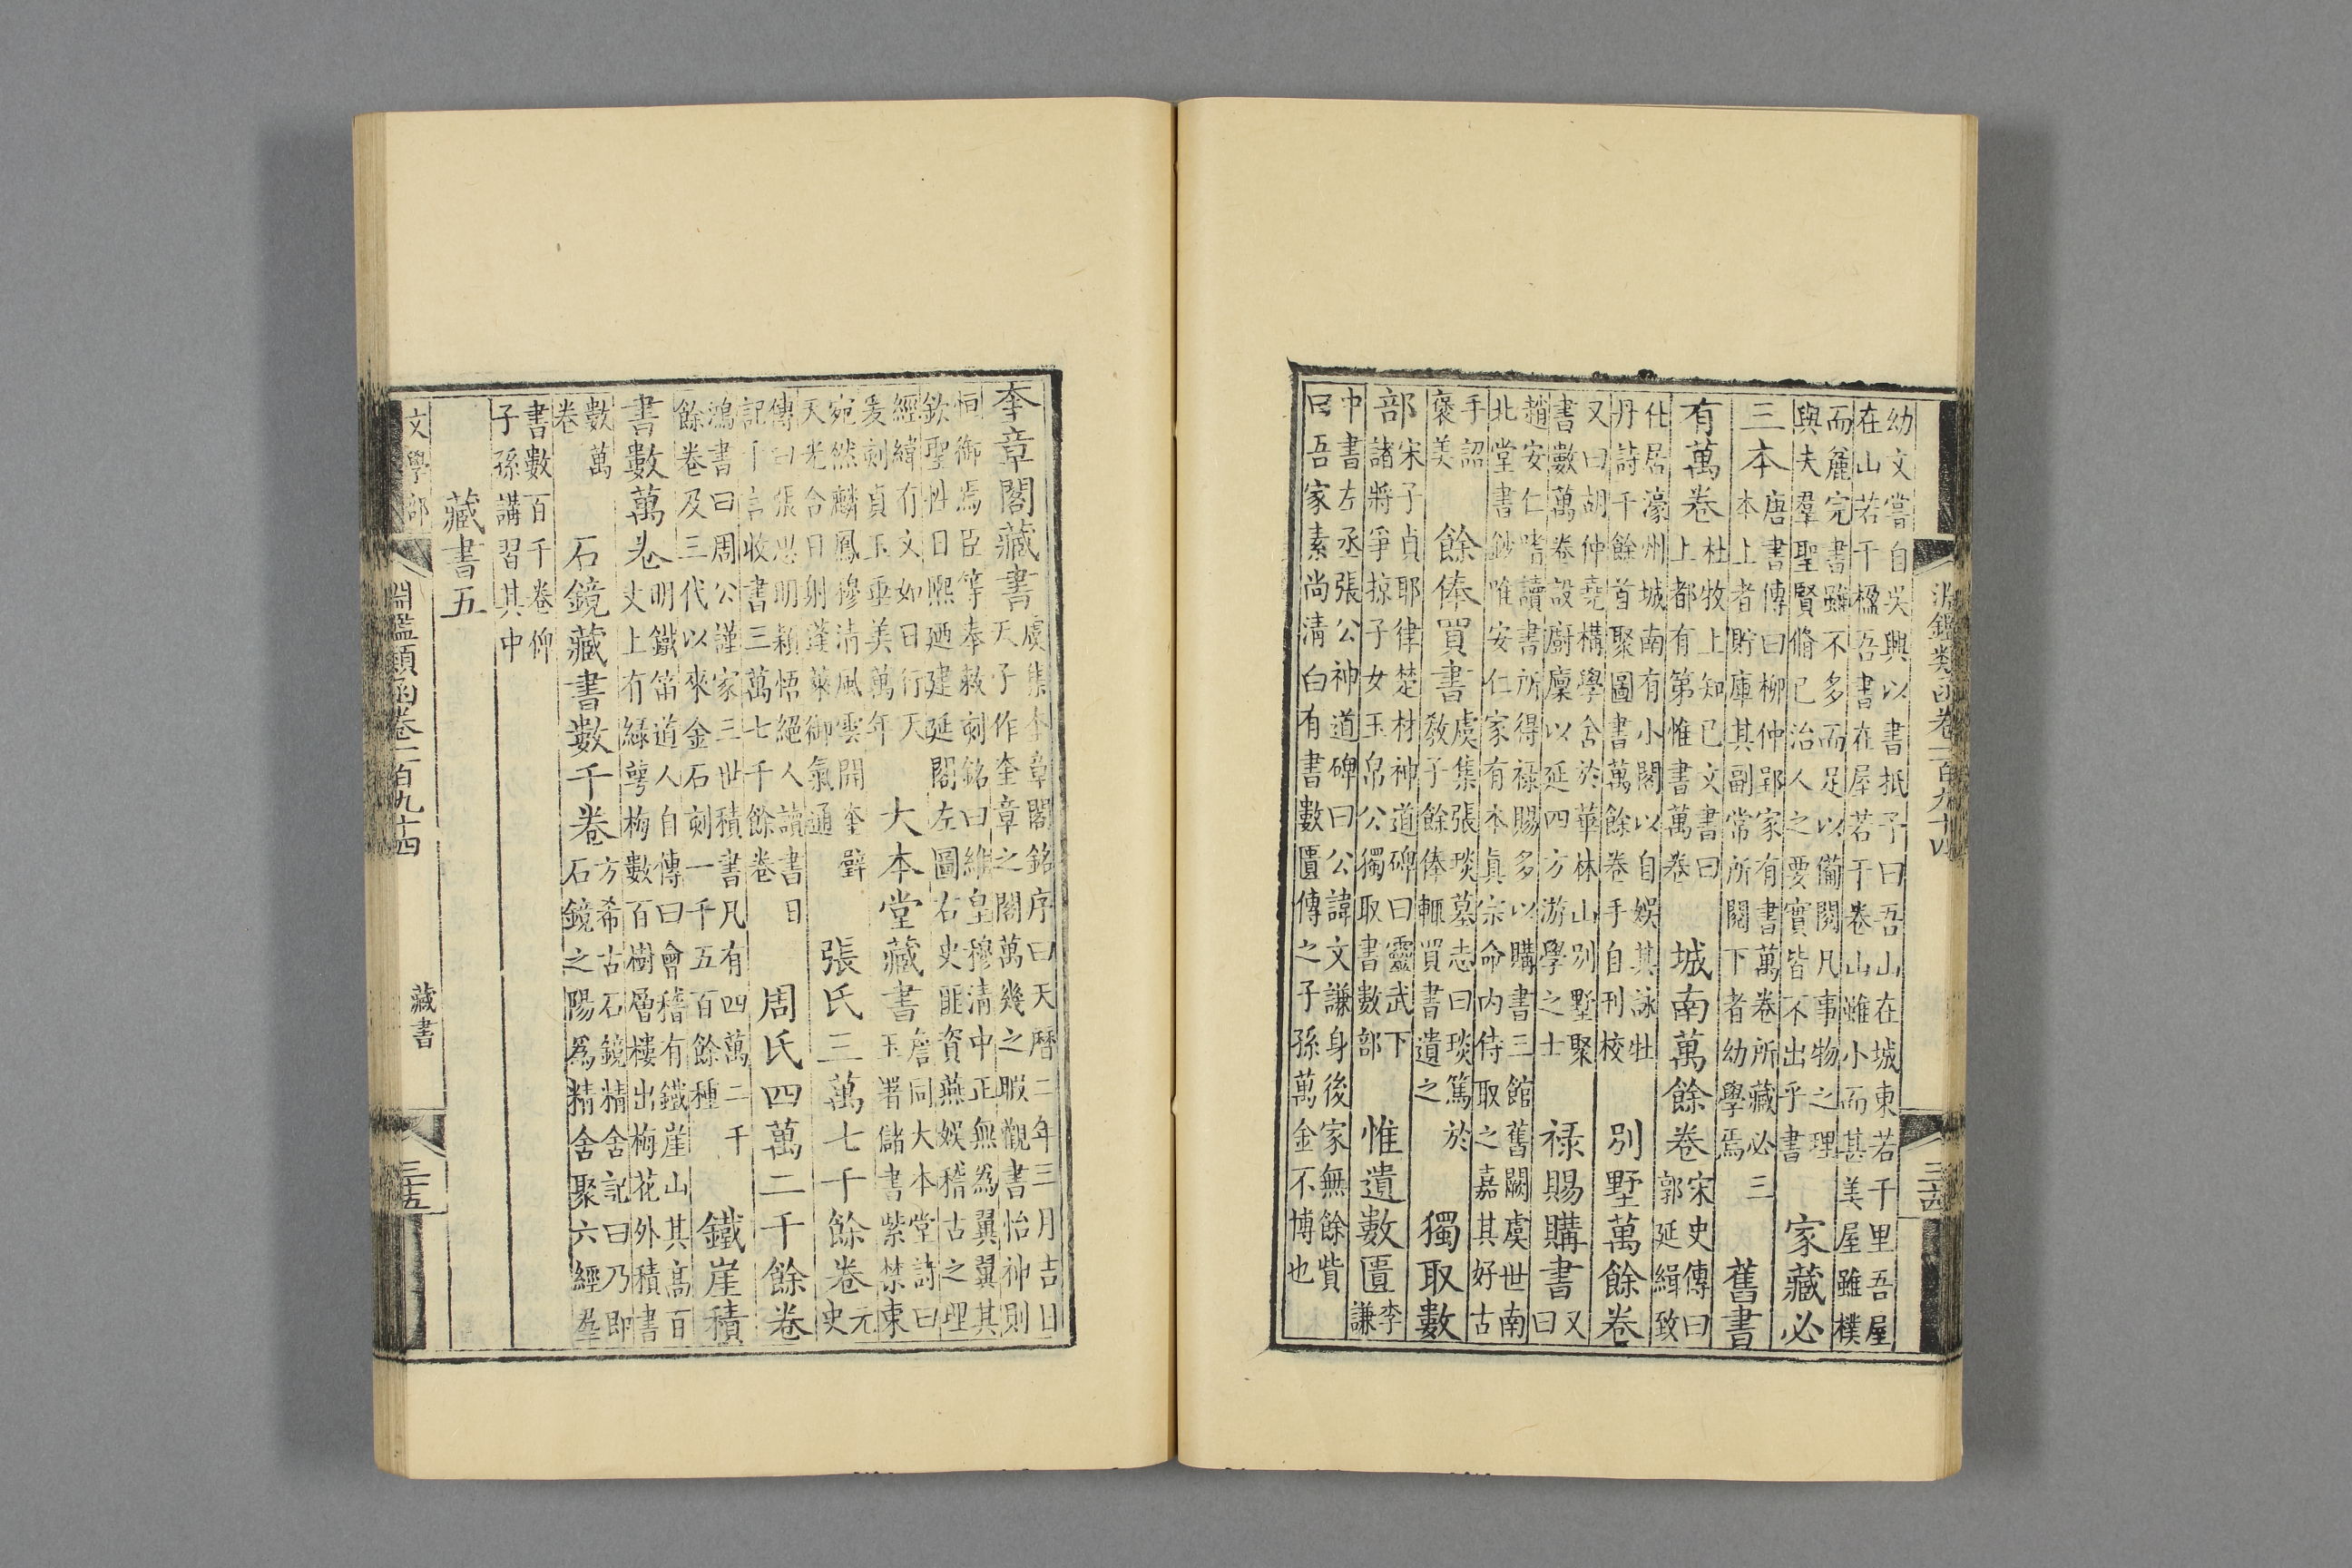 淵鑑類函卷一百九十四 三十四
幼文嘗自吳興以書抵予曰吾山在城東若干里吾屋
在山若干楹吾書在屋若干卷山雖小而甚美屋雖樸
而麄完書雖不多而足以備閱凡事物之理
與夫羣聖賢脩己治人之要實皆不出乎書
家藏必
三本
唐書傳曰柳仲郢家有書萬卷所藏必三
本上者貯庫其副常所閱下者幼學焉
舊書
有萬卷
杜牧上知己文書曰
上都有第惟書萬卷
城南萬餘卷
宋史傳曰
郭延緝致
仕居濠州城南有小閣以自娛其詠牡
丹詩千餘首聚圖書萬餘卷手自刊校
別墅萬餘卷
又曰胡仲堯構學舍於華林山別墅聚
書數萬卷設廚廩以延四方游學之士
祿賜購書
又
曰
趙安仁嗜讀書所得祿賜多以購書三館舊闕虞世南
北堂書鈔惟安仁家有本眞宗命内侍取之嘉其好古
手詔
褒美
餘俸買書
虞集張琰墓志曰琰篤於
敎子餘俸輒買書遺之
獨取數
部
宋子貞耶律楚材神道碑曰靈武下
諸將爭掠子女玉帛公獨取書數部
惟遺數匱
李
謙
中書左丞張公神道碑曰公諱文謙身後家無餘貲
曰吾家素尚淸白有書數匱傳之子孫萬金不博也
奎章閣藏書
虞集奎章閣銘序曰天曆二年三月吉日
天子作奎章之閣萬幾之暇觀書怡神則
恒御焉臣等奉敕刻銘曰維皇穆淸中正無爲翼翼其
欽聖性日熙廼建延閣左圖右史匪資燕娛稽古之理
經緯有文如日行天
爰刻貞玉垂美萬年
大本堂藏書
詹同大本堂詩曰
玉署儲書紫禁東
宛然麟鳳穆淸風雲開奎壁
天光合日射蓬萊御氣通
張氏三萬七千餘卷
元
史
傳曰張思明穎悟絕人讀書日
記千言收書三萬七千餘卷
周氏四萬二千餘卷
鴻書曰周公謹家三世積書凡有四萬二千
餘卷及三代以來金石刻一千五百餘種
鐵崖積
書數萬卷
明鐵笛道人自傳曰會稽有鐵崖山其高百
丈上有綠萼梅數百樹層樓出梅花外積書
數萬
卷
石鏡藏書數千卷
方希古石鏡精舍記曰乃卽
石鏡之陽爲精舍聚六經羣
書數百千卷俾
子孫講習其中
藏書五
文學部 淵鑑類函卷一百九十四 藏書 三十五